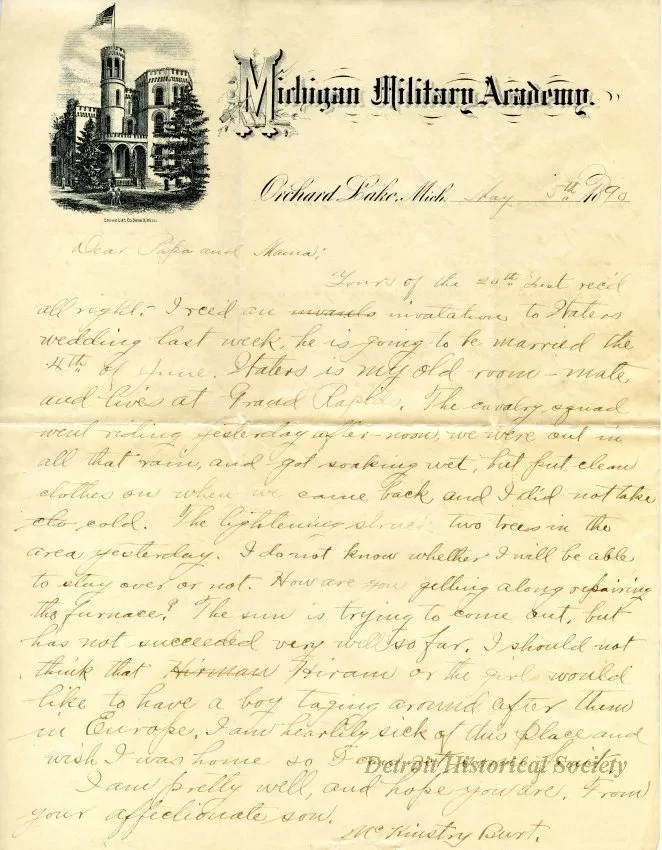 Michigan Military Academy.
Orchard Lake, Mich. May 5th 1890
Dear Papa and Mama;
Yours of the 20th Inst rec'd
all right.- I rec'd an invatation to Haters
wedding last week, he is going to be married the
4th of June. Haters is my old room-mate
and lives at Grand Rapids. The cavalry squad
went riding yesterday after-noon, we were out in
all that rain, and got soaking wet, but put clean
clothes on when we came back and I did not take
clo cold. The lightening struck two trees in the
area yesterday. I do not know whether I will be able
to stay over or not. How are you getting along repairing
the furnace? The sun is trying to come out, but
has not succeeded very well so far. I should not
think that Hirman Hiram or the girls would
like to have a boy taging around after them
in Europe. I am heartily sick of this place and
wish I was home so I could
Detroit Historical Society
I am pretty well, and hope you are. From
your affectionate son.
McKinstry Burt.